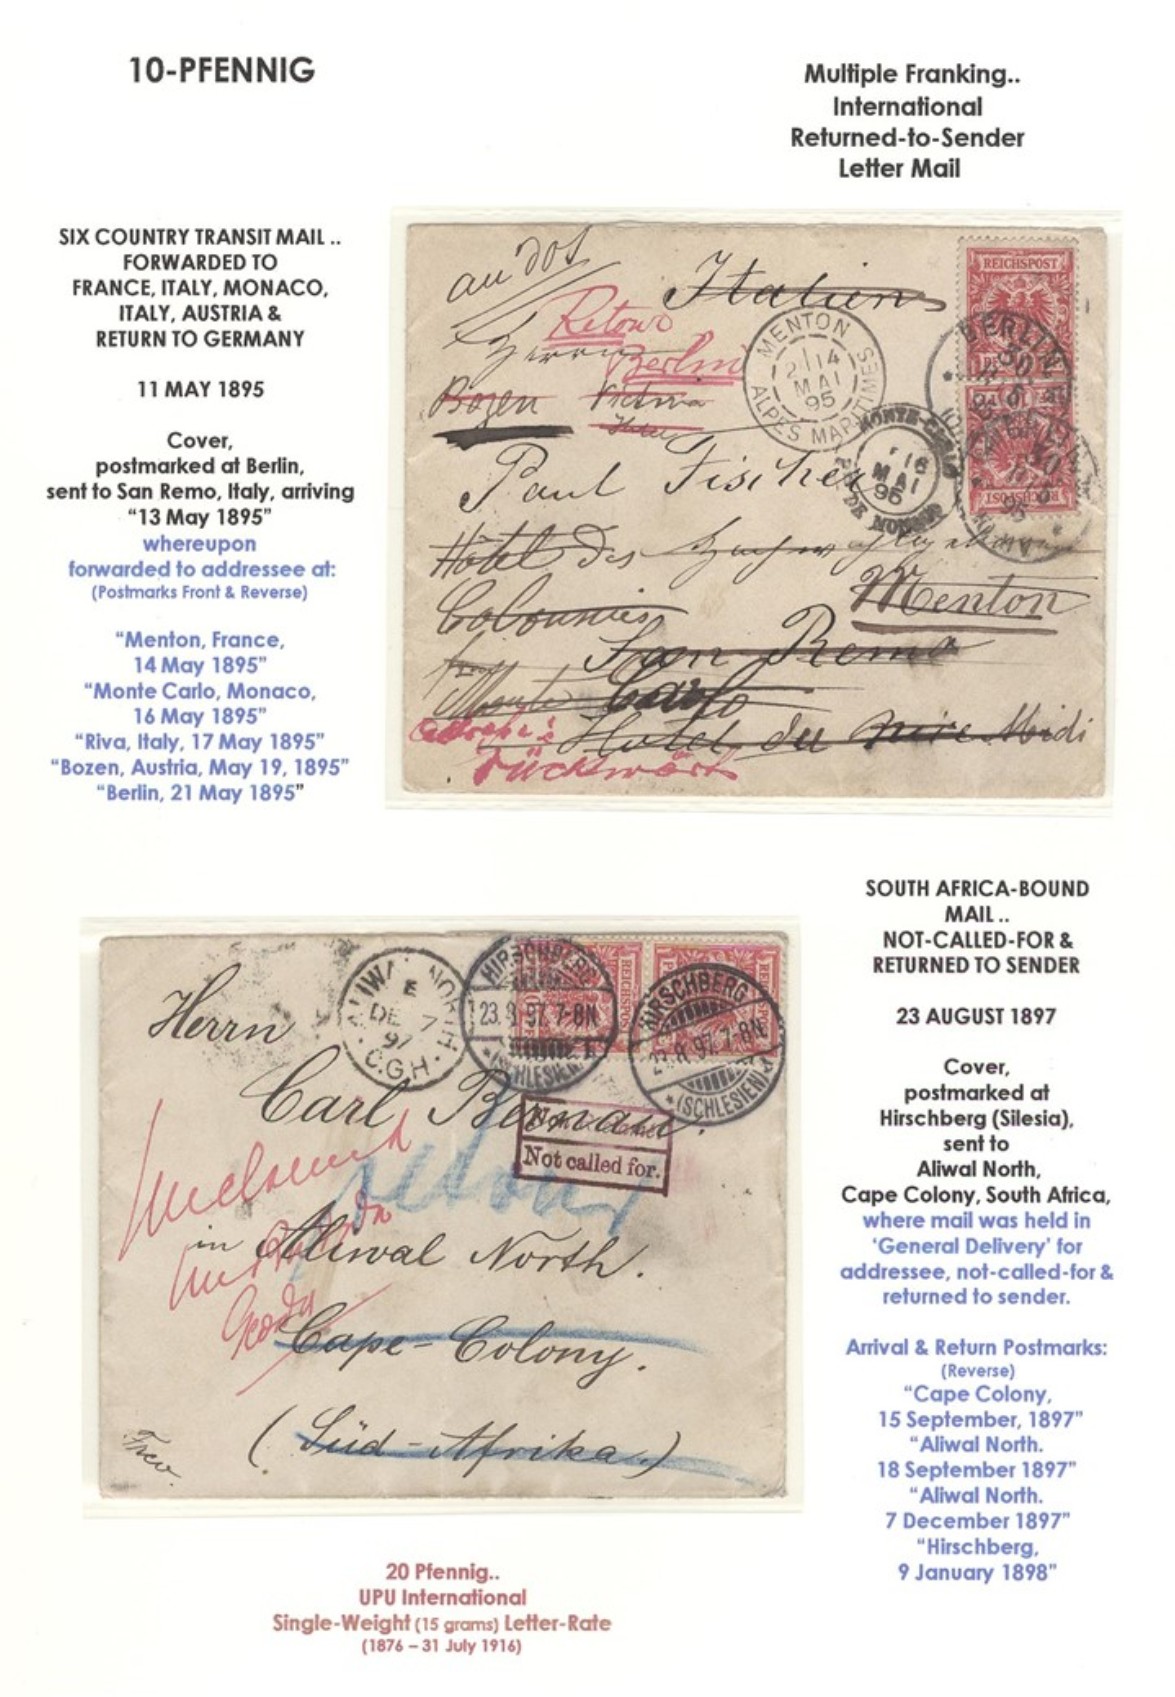 10-PFENNIG
Multiple Franking..
International
Returned-to-Sender
Letter Mail
SIX COUNTRY TRANSIT MAIL ..
FORWARDED TO
FRANCE, ITALY, MONACO,
ITALY, AUSTRIA &
RETURN TO GERMANY
11 MAY 1895
Cover,
postmarked at Berlin,
sent to San Remo, Italy, arriving
“13 May 1895”
whereupon
forwarded to addressee at:
(Postmarks Front & Reverse)
“Menton, France,
14 May 1895”
“Monte Carlo, Monaco,
16 May 1895”
“Riva, Italy, 17 May 1895”
“Bozen, Austria, May 19, 1895”
“Berlin, 21 May 1895”
Italien
REICHSPOST
Retour
Berlin
MENTON
MAI
95
ALPES MARITIMES
BERLIN
Herrn
Bozen Victoria
MONTE-CARLO
16
MAI
95
REICHSPOST
Paul Fischer
Hôtel des
Menton
San Remo
Monte Carlo
Hotel du Midi
rückwärts
SOUTH AFRICA-BOUND
MAIL ..
NOT-CALLED-FOR &
RETURNED TO SENDER
23 AUGUST 1897
Cover,
postmarked at
Hirschberg (Silesia),
sent to
Aliwal North,
Cape Colony, South Africa,
where mail was held in
‘General Delivery’ for
addressee, not-called-for &
returned to sender.
Arrival & Return Postmarks:
(Reverse)
“Cape Colony,
15 September, 1897”
“Aliwal North.
18 September 1897”
“Aliwal North.
7 December 1897”
“Hirschberg,
9 January 1898”
ALIWAL NORTH
E
DE 7
97
C.G.H.
HIRSCHBERG
23.8.97.7-8N
(SCHLESIEN)
REICHSPOST
HIRSCHBERG
23.8.97.7-8N
*(SCHLESIEN)
Herrn
Carl
Not called for.
retour
in Aliwal North.
Cape-Colony.
(Süd-Afrika.)
20 Pfennig..
UPU International
Single-Weight (15 grams) Letter-Rate
(1876 – 31 July 1916)